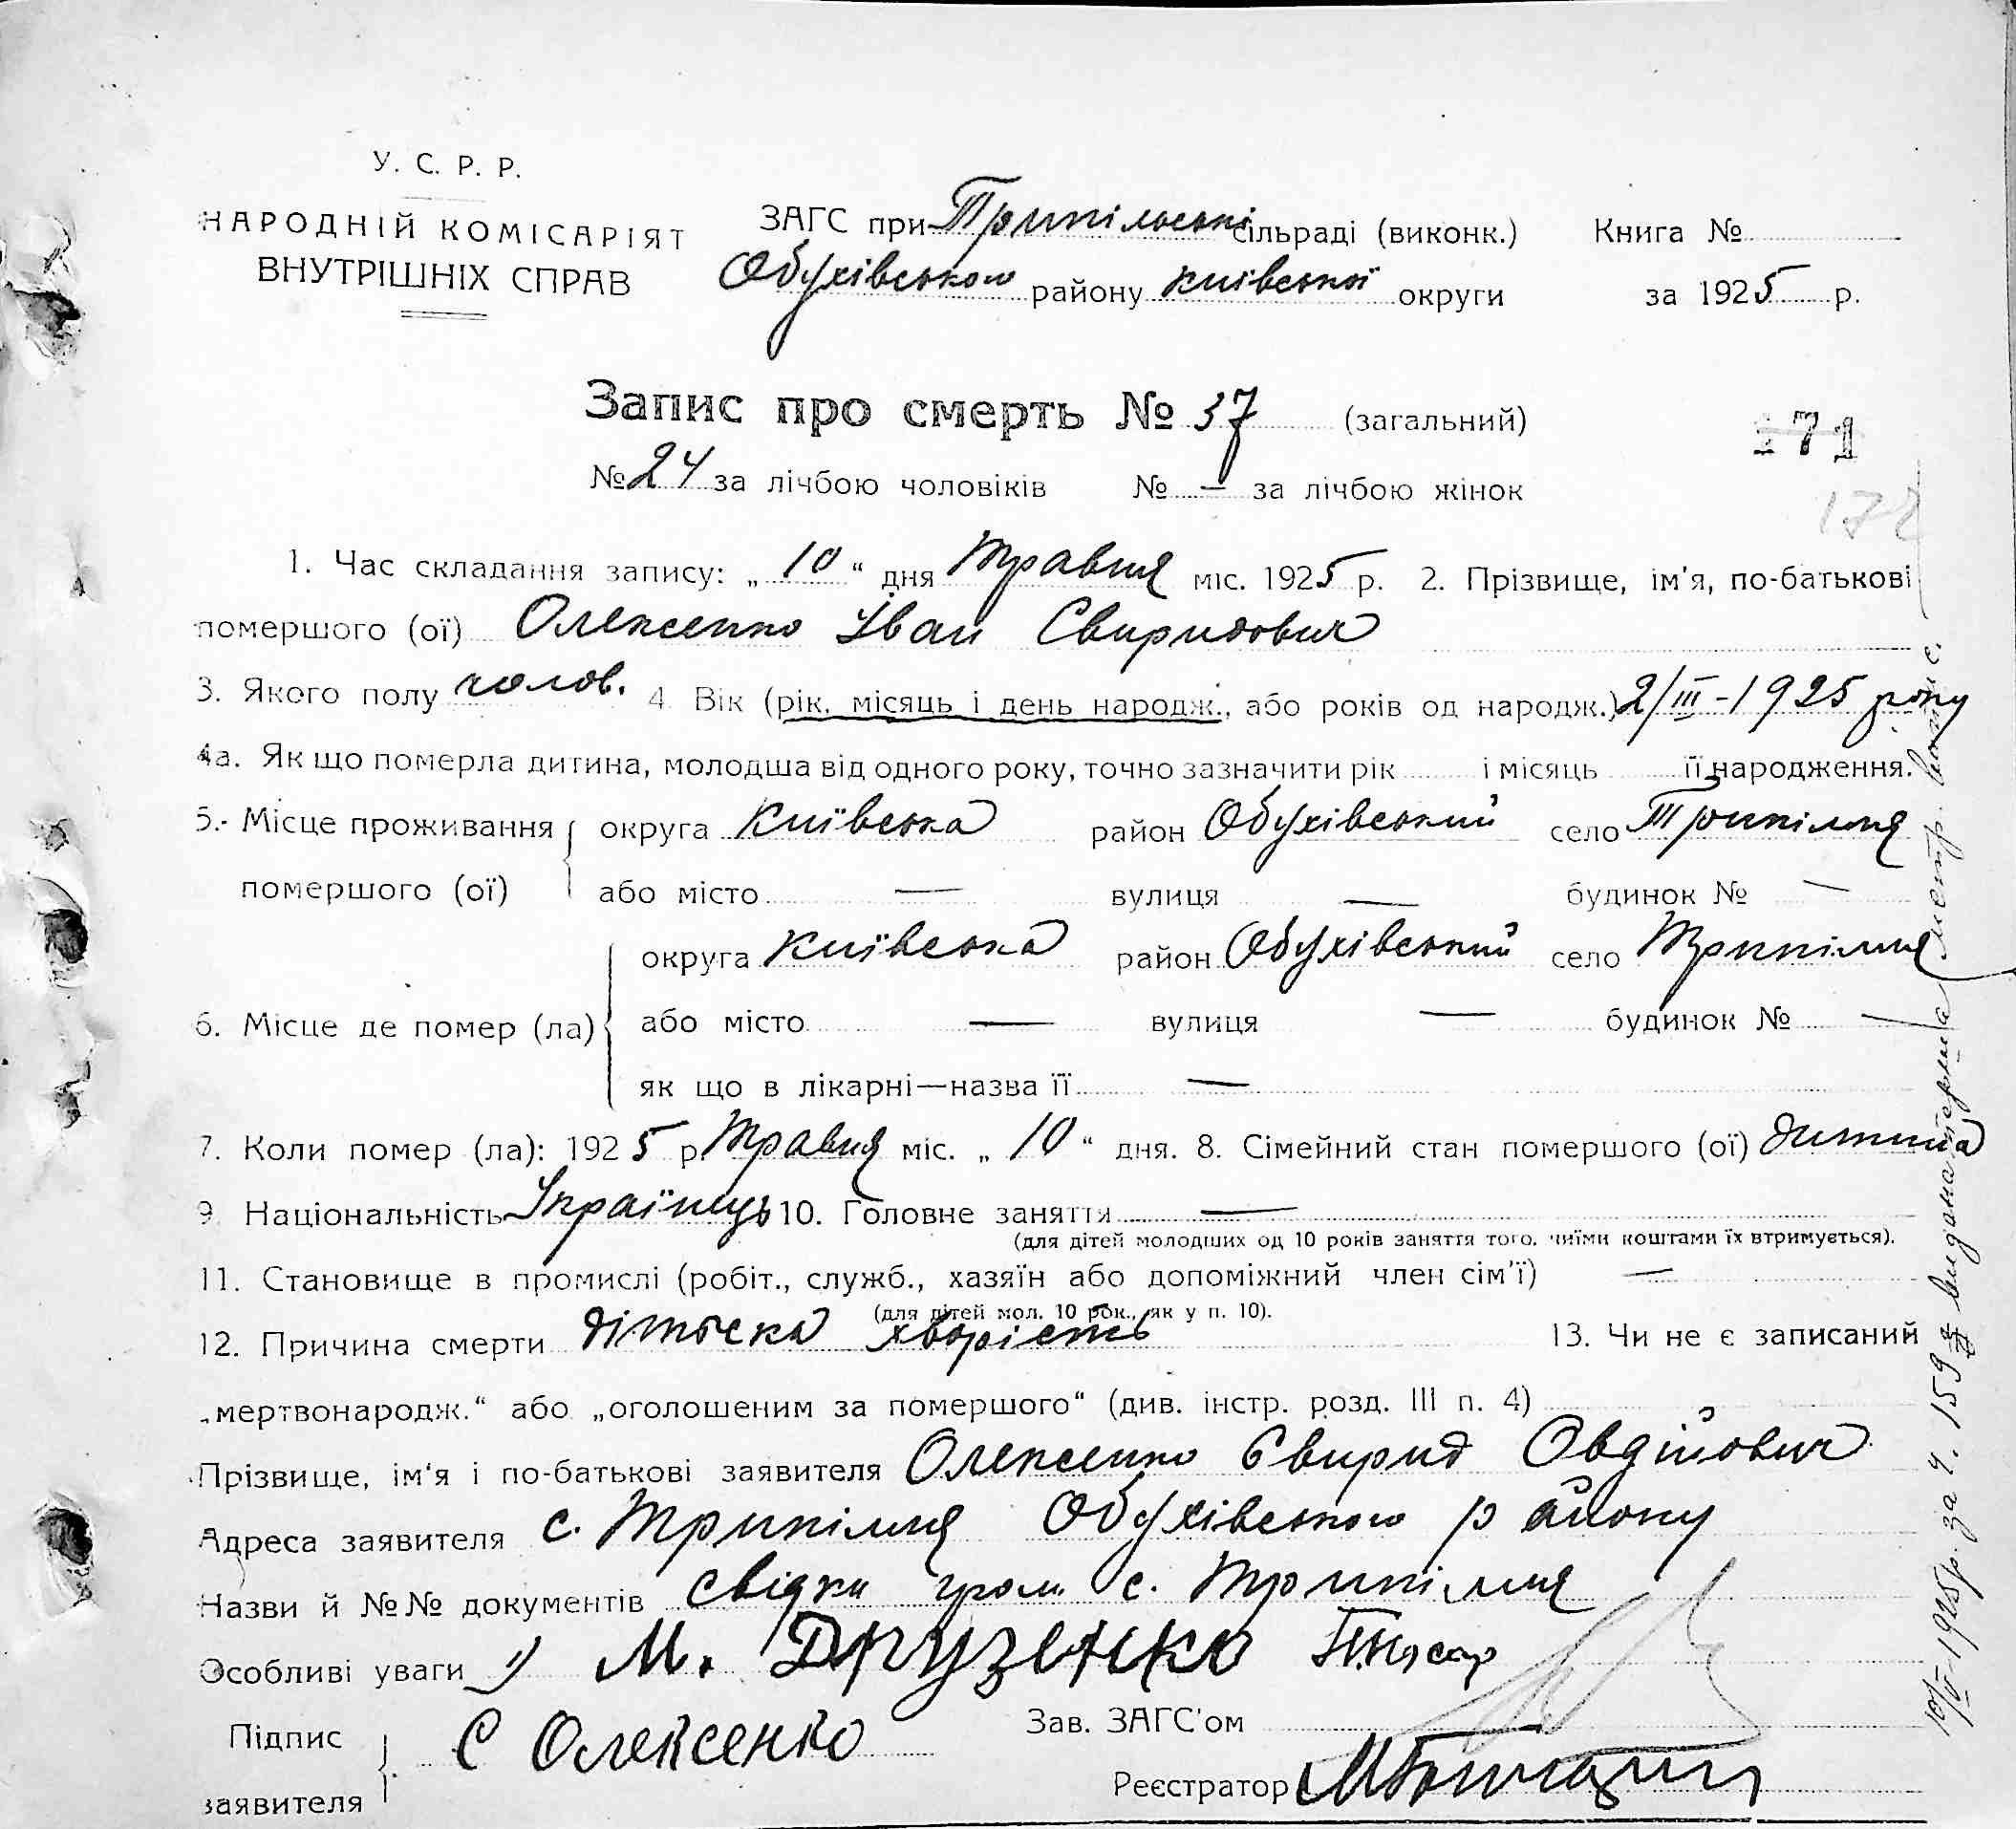 У. С. Р. Р.
НАРОДНІЙ КОМІСАРІЯТ
ВНУТРІШНІХ СПРАВ
ЗАГС при Трипільські сільраді (виконк.) Книга №
Обухівського району Київської округи за 1925 р.
Запис про смерть № 37 (загальний)
171
№ 24 за лічбою чоловіків № — за лічбою жінок
172
1. Час складання запису: „ 10 “ дня Травня міс. 1925 р. 2. Прізвище, ім'я, по-батькові
помершого (ої) Олексенко Іван Свиридович
3. Якого полу чолов. 4 Вік (рік, місяць і день народж., або років од народж.) 2/III-1925 року
4а. Як що померла дитина, молодша від одного року, точно зазначити рік і місяць її народження.
5.- Місце проживання округа Київська район Обухівський село Трипілля
помершого (ої) або місто — вулиця — будинок № —
округа Київська район Обухівський село Трипілля
6. Місце де помер (ла) або місто — вулиця — будинок № —
як що в лікарні—назва її —
7. Коли помер (ла): 1925 р. Травня міс. „ 10 “ дня. 8. Сімейний стан помершого (ої) дитина
9 Національність Українець 10. Головне заняття —
(для дітей молодших од 10 років заняття того, чиїми коштами їх втримується).
11. Становище в промислі (робіт., служб., хазяїн або допоміжний член сім'ї) —
(для дітей мол. 10 рок., як у п. 10).
12. Причина смерти дітьска хворість 13. Чи не є записаний
„мертвонародж.“ або „оголошеним за помершого“ (див. інстр. розд. III п. 4)
Прізвище, ім'я і по-батькові заявителя Олексенко Свирид Овдійович
Адреса заявителя с. Трипілля Обухівського району
Назви й №№ документів свідки гром. с. Трипілля
Особливі уваги 1) М. Друзенко
Підпис заявителя С Олексенко
Зав. ЗАГС'ом
Реєстратор
10/V-1925р. за ч. 159 видана метр. випис.